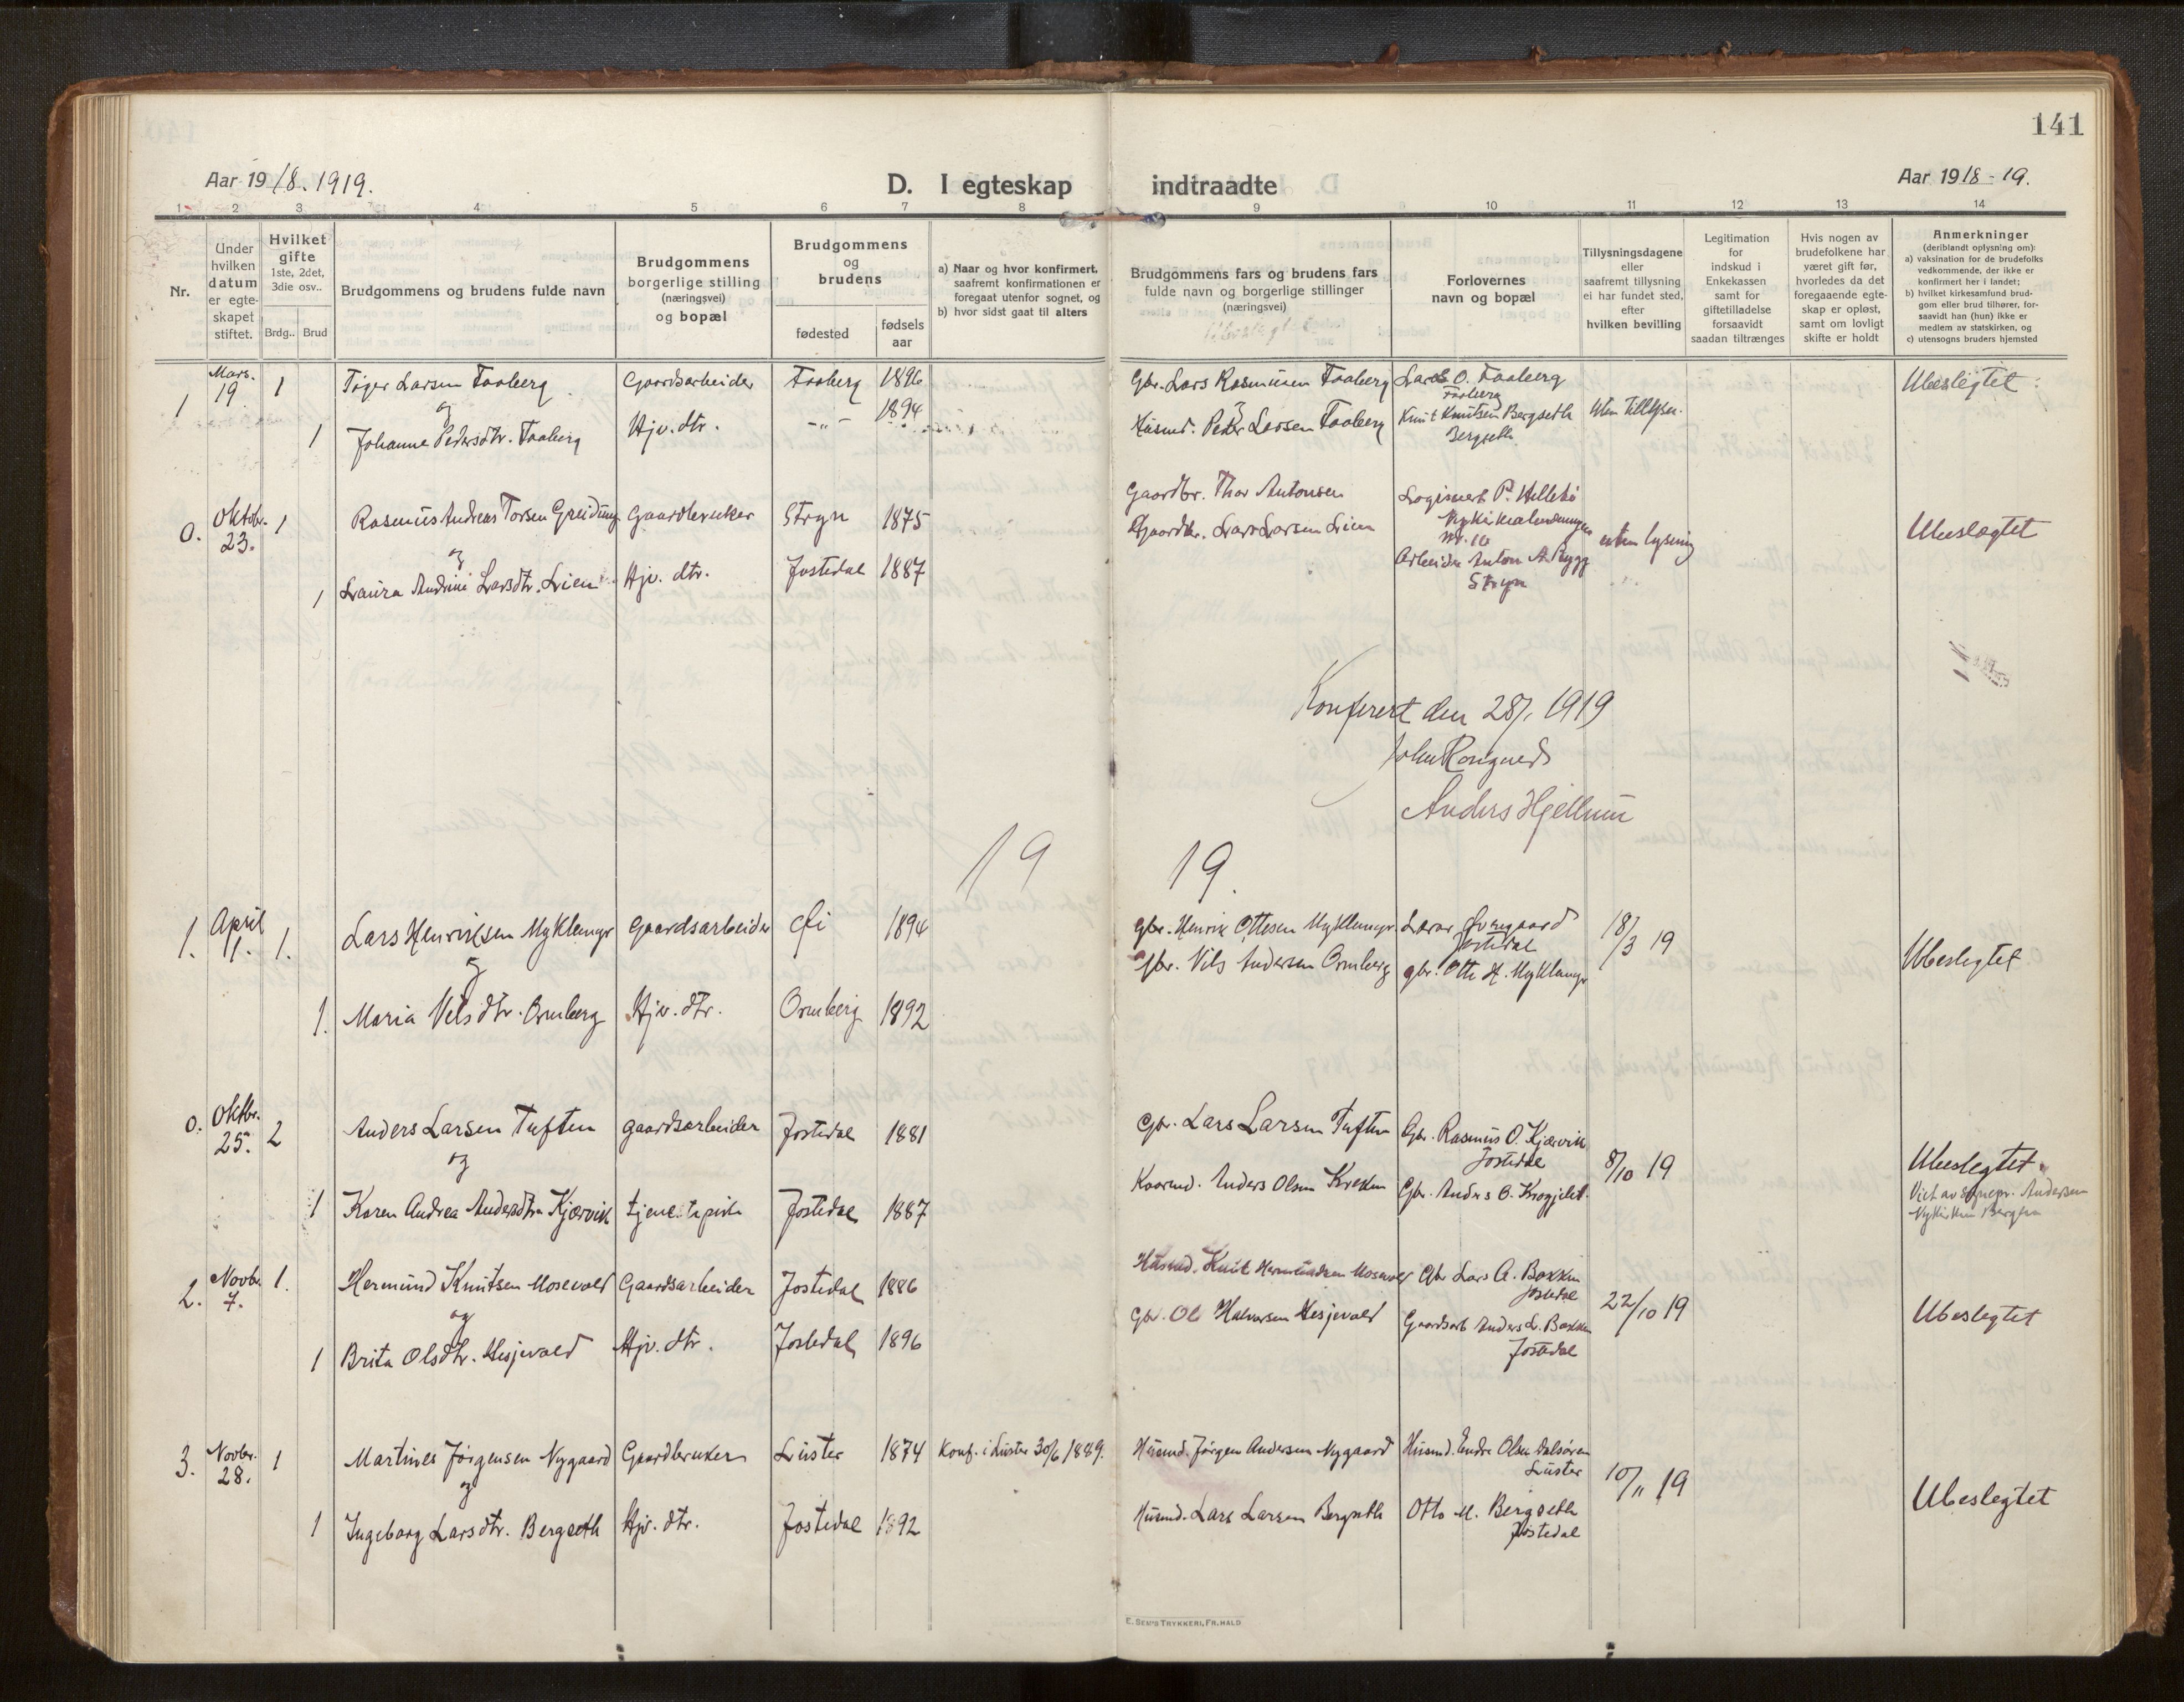 141
Aar 1918. 1919.
D. I egteskap indtraadte
Aar 1918-19.
1 2 3 4 5 6 7 8 9 10 11 12 13 14
Nr.
Under hvilken datum er egte-skapet stiftet.
Hvilket gifte
1ste, 2det, 3die osv..
Brdg.. Brud
Brudgommens og brudens fulde navn
Brudgommens borgerlige stilling (næringsvei) og bopæl
Brudgommens og brudens
fødested
fødsels aar
a) Naar og hvor konfirmert, saafremt konfirmationen er foregaat utenfor sognet, og
b) hvor sidst gaat til alters
Brudgommens fars og brudens fars fulde navn og borgerlige stillinger (næringsvei)
Forlovernes navn og bopæl
Tillysningsdagene eller saafremt tillysning ei har fundet sted, efter hvilken bevilling
Legitimation for indskud i Enkekassen samt for giftetilladelse forsaavidt saadan tiltrænges
Hvis nogen av brudefolkene har været gift før, hvorledes da det foregaaende egte-skap er opløst, samt om lovligt skifte er holdt
Anmerkninger
(deriblandt oplysning om):
a) vaksination for de brudefolks vedkommende, der ikke er konfirmert her i landet;
b) hvilket kirkesamfund brud-gom eller brud tilhører, for-saavidt han (hun) ikke er medlem av statskirken, og
c) utensogns bruders hjemsted
1 Mars. 19 1 Tøger Larsen Faaberg Gaardsarbeider Faaberg 1896 Gbr. Lars Rasmusen Faaberg Lars O. Faaberg Faaberg Ubeslegtet
og
1 Johanne Pedersdtr. Faaberg Hjv. dtr. -"- 1894 Husmd. Peder Larsen Faaberg Knut Knutsen Bergseth Bergseth Uten tillysn.
0. Oktobr. 23. 1 Rasmus Andreas Torsen Greidung Gaardbruker Stryn 1875 Gaardbr. Thor Antonsen Logisvert P. Hillekø Nykirkealmenningen nr. 10 uten lysning Ubeslægtet
og
1 Laura Andrine Larsdtr. Lien Hjv. dtr. Jostedal 1887 Gaardbr. Lars Larsen Lien Arbeider Anton A. Rygg Stryn
Konferert den 28/1 1919
John Rongned
Anders Hjellum
19 19.
1. April 11. 1. Lars Henriksen Myklemyr Gaardsarbeider Øi 1894 Gbr. Henrik Ottesen Myklemyr Lærer Øvregaard Jostedal 18/3 19 Ubeslegtet
og
1. Maria Nilsdtr. Ormberg Hjv. dtr. Ormberg 1892 Gbr. Nils Andersen Ormberg gbr. Otto H. Myklemyr
0. Oktbr. 25. 2 Anders Larsen Tuften gaardsarbeider Jostedal 1881 Gbr. Lars Larsen Tuften Gbr. Rasmus O. Kjærvik Jostedal 8/10 19 Ubeslegtet.
og
1 Karen Andrea Andersdtr. Kjærvik tjenestepike Jostedal 1887 Kaarmd. Anders Olsen Kreken Gbr. Anders O. Krogjelet. Viet av sognepr. Andersen Nykirken Bergen
2. Novbr. 7. 1. Hermund Knutsen Mosevold Gaardsarbeider Jostedal 1886 Husmd. Knut Hermundsen Mosevold Gbr Lars A. Bakken Jostedal 22/10 19 Ubeslegtet
og
1 Brita Olsdtr. Hesjevold Hjv. dtr. Jostedal 1896 Gbr. Ole Halvorsen Hesjevold Gaardsarb Anders L. Bakken Jostedal
3. Novbr. 28. 1 Martines Jørgensen Nygaard Gaardbruker Luster 1874 Konf. i Luster 30/6 1889. Husmd. Jørgen Andersen Nygaard Husmd. Endre Olsen Dalsøren Luster 10/11 19 Ubeslegtet
og
1 Ingeborg Larsdtr. Bergseth Hjv. dtr. Jostedal 1892 Husmd. Lars Larsen Bergseth Otto M. Bergseth Jostedal
E. SEM'S TRYKKERI, FR.HALD